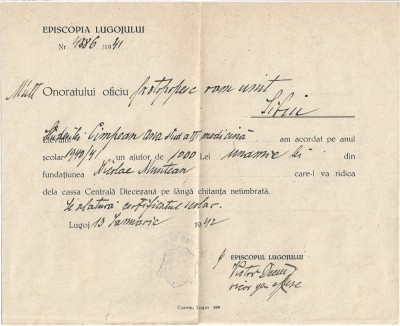 EPISCOPIA LUGOJULUI
Nr. 4386/1941
Mult Onoratului oficiu protopopesc rom unit
Sibiu
Elevului Studentei Cimpean Ana stud a III medicină am acordat pe anul
școlar 1940/41 un ajutor de 1000 Lei una mie lei din
fundațiunea Nicolae Muntean care-l va ridica
dela cassa Centrală Diecezană pe lângă chitanța netimbrată.
Se alătură certificatul școlar.
Lugoj 13 Ianuarie 1942
EPISCOPUL LUGOJULUI
Victor
vicar gen.